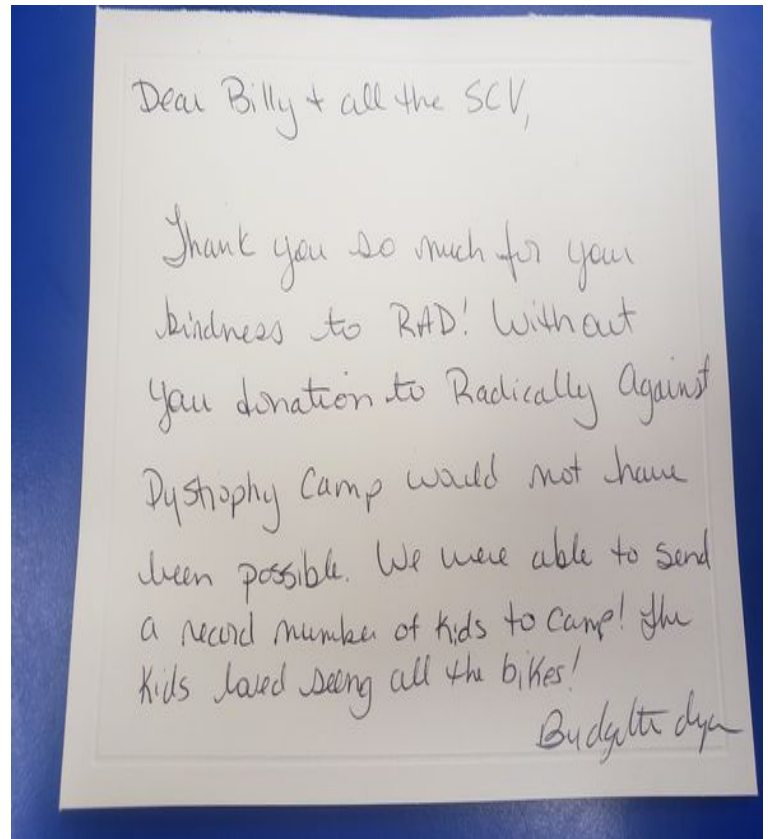 Dear Billy + all the SCV,
Thank you so much for your
kindness to RAD! Without
you donation to Radically Against
Dystrophy Camp would not have
been possible. We were able to send
a record number of kids to camp! The
kids loved seeing all the bikes!